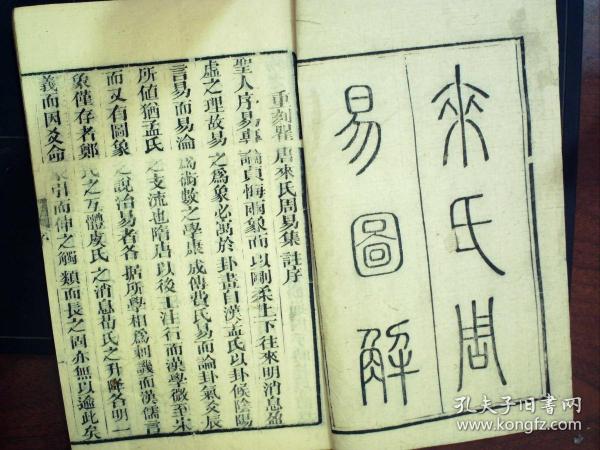 來氏周
易圖解
重刻瞿唐來氏周易集註序
聖人序易專論貞悔兩象而以剛柔上下往來明消息盈
虛之理故易之為象必寓於卦畫自漢孟氏以卦候陰陽
言易而易淪為術數之學康成傳費氏易而論卦氣爻辰
所值猶孟氏之支流也隋唐以後王注行而漢學微至宋
而又有圖象之說治易者各據所學相為刺譏而漢儒言
象僅存者鄭氏之互體虞氏之消息荀氏之升降各明一
義而因爻命象引而伸之觸類而長之固亦無以逾此矣
孔夫子旧书网
www.kongfz.com